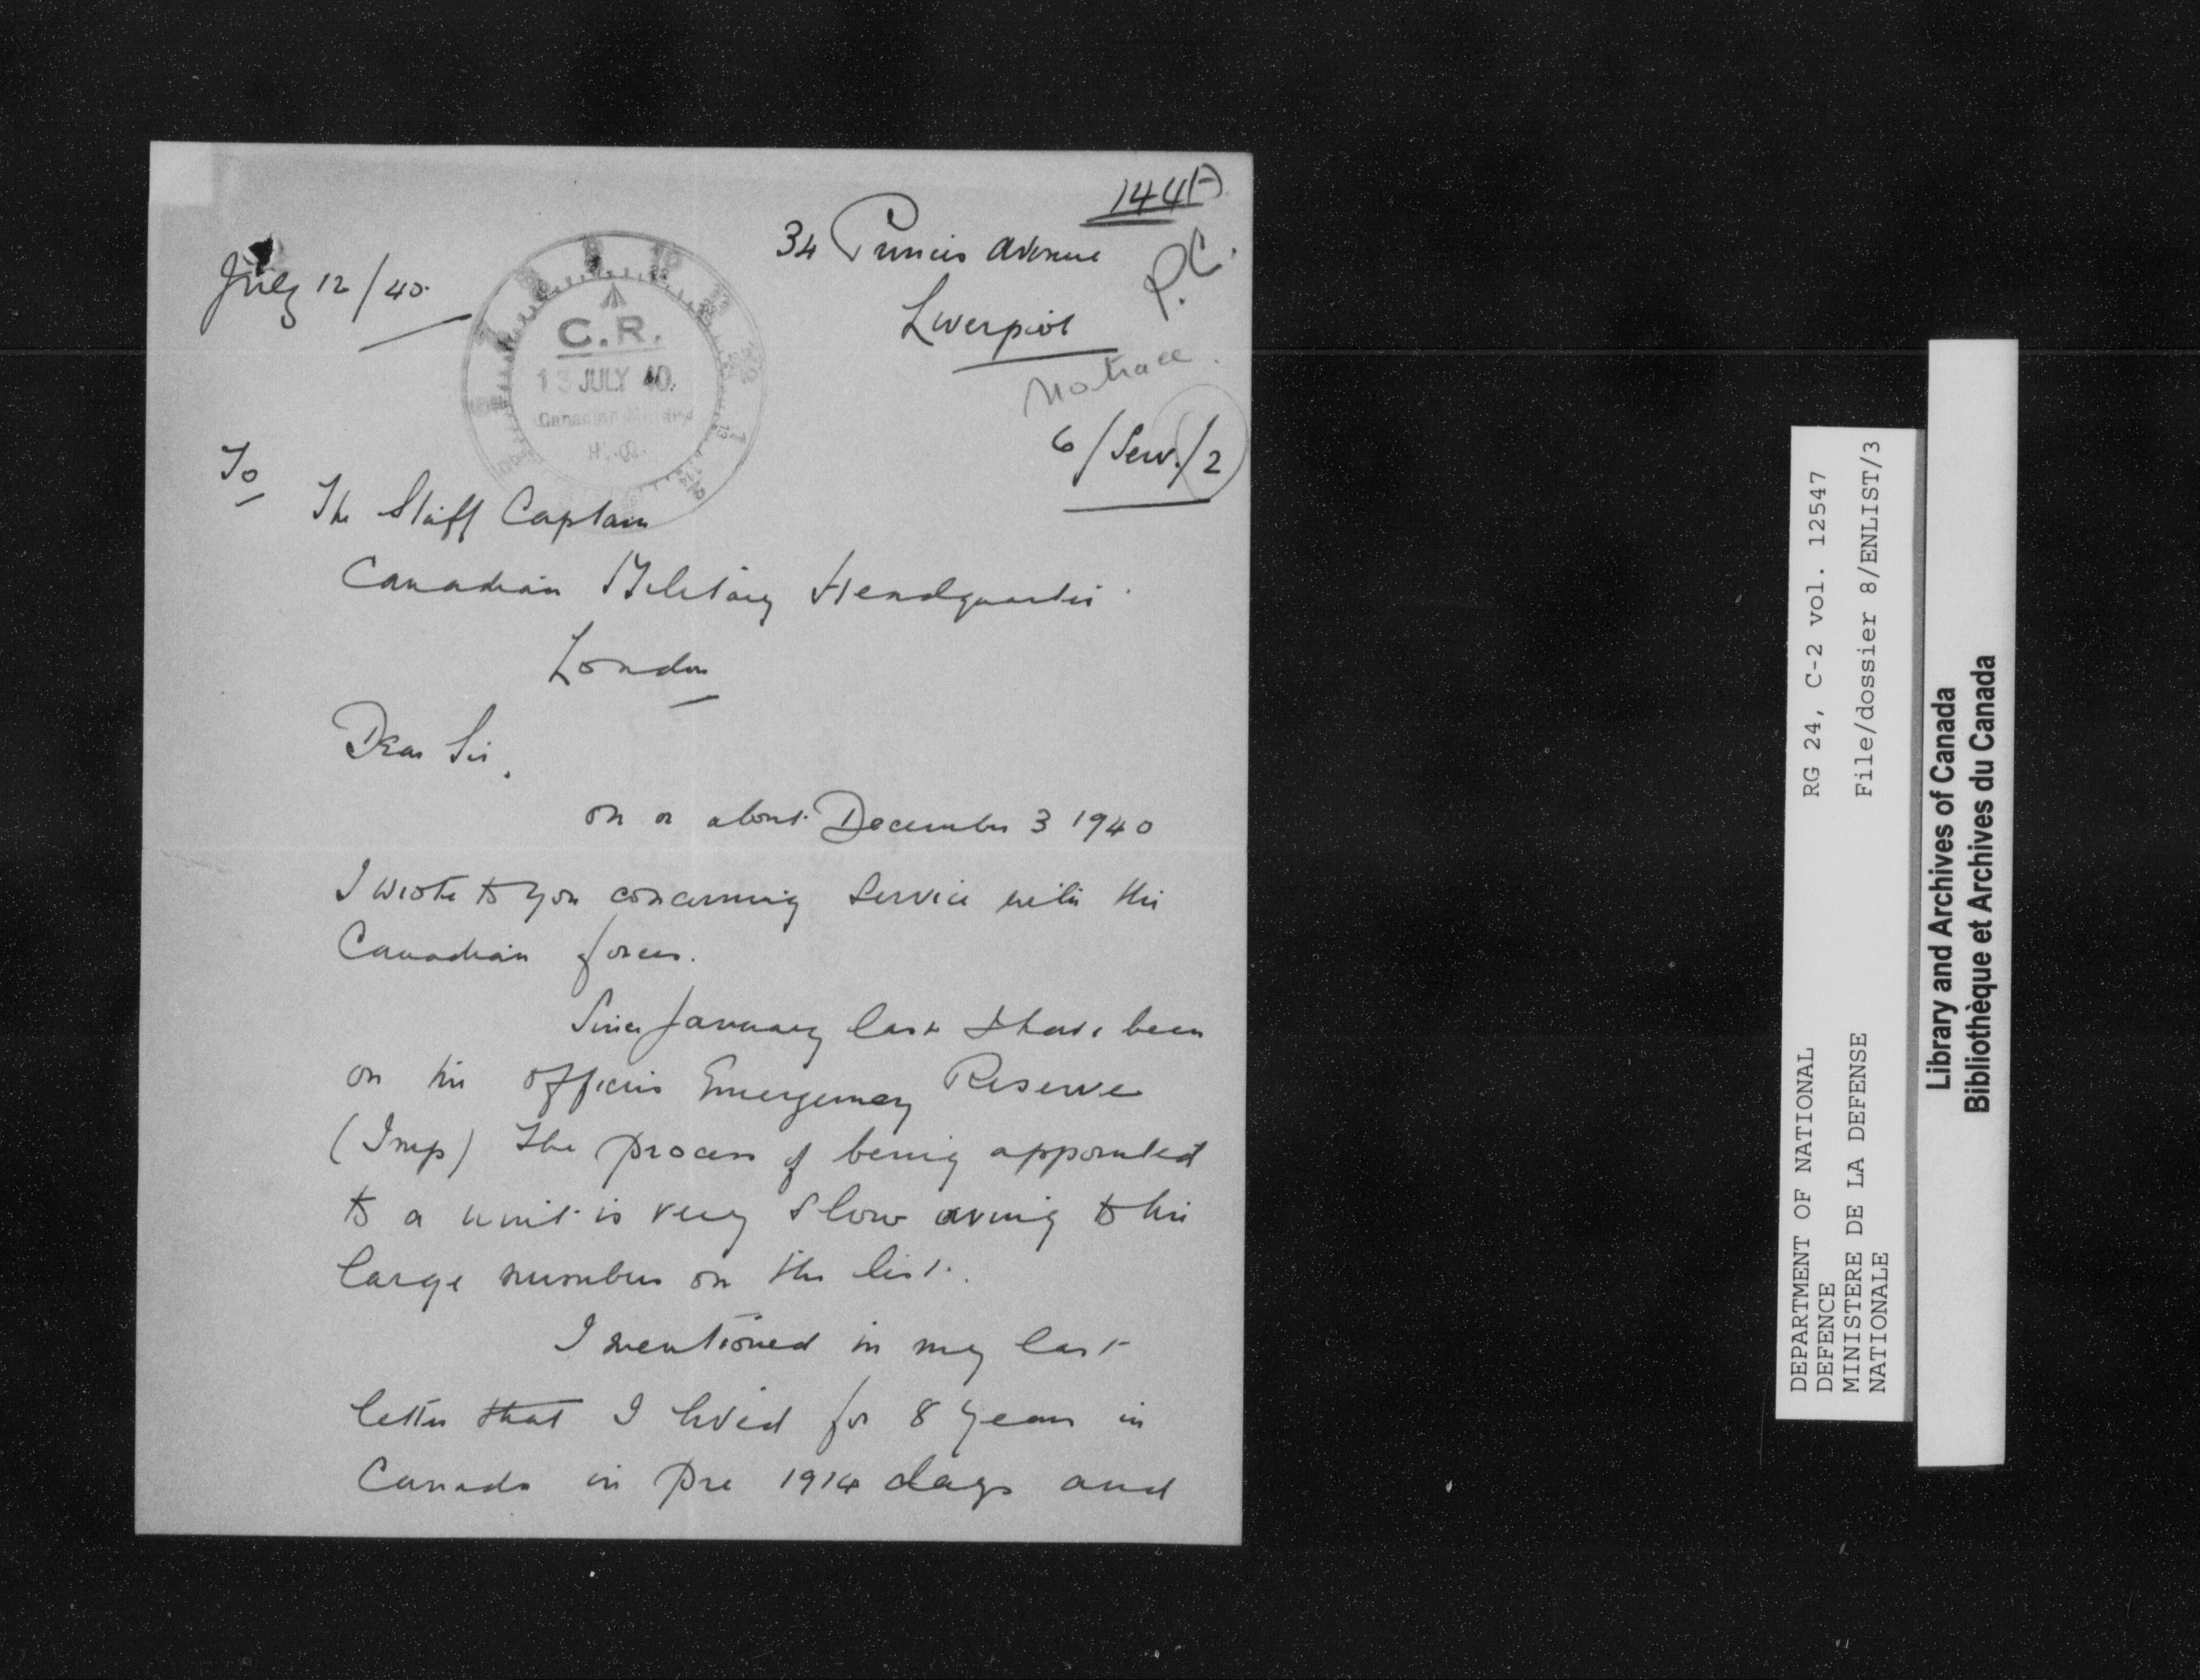 144(A)
July 12/40.
34 Princes Avenue
P.C.
Liverpool
No trace.
C.R.
13 JULY 40.
Canadian Military
H.Q.
6/Serv./2
To
The Staff Captain
Canadian Military Headquarters
London
Dear Sir,
On or about December 3 1940
I wrote to you concerning service with the
Canadian forces.
Since January last I have been
on the Officers Emergency Reserve
(Imp) The process of being appointed
to a unit is very slow owing to the
large numbers on the list.
I mentioned in my last
letter that I lived for 8 years in
Canada in pre 1914 days and
DEPARTMENT OF NATIONAL
DEFENCE
MINISTERE DE LA DEFENSE
NATIONALE
RG 24, C-2 vol. 12547
File/dossier 8/ENLIST/3
Library and Archives of Canada
Bibliothèque et Archives du Canada